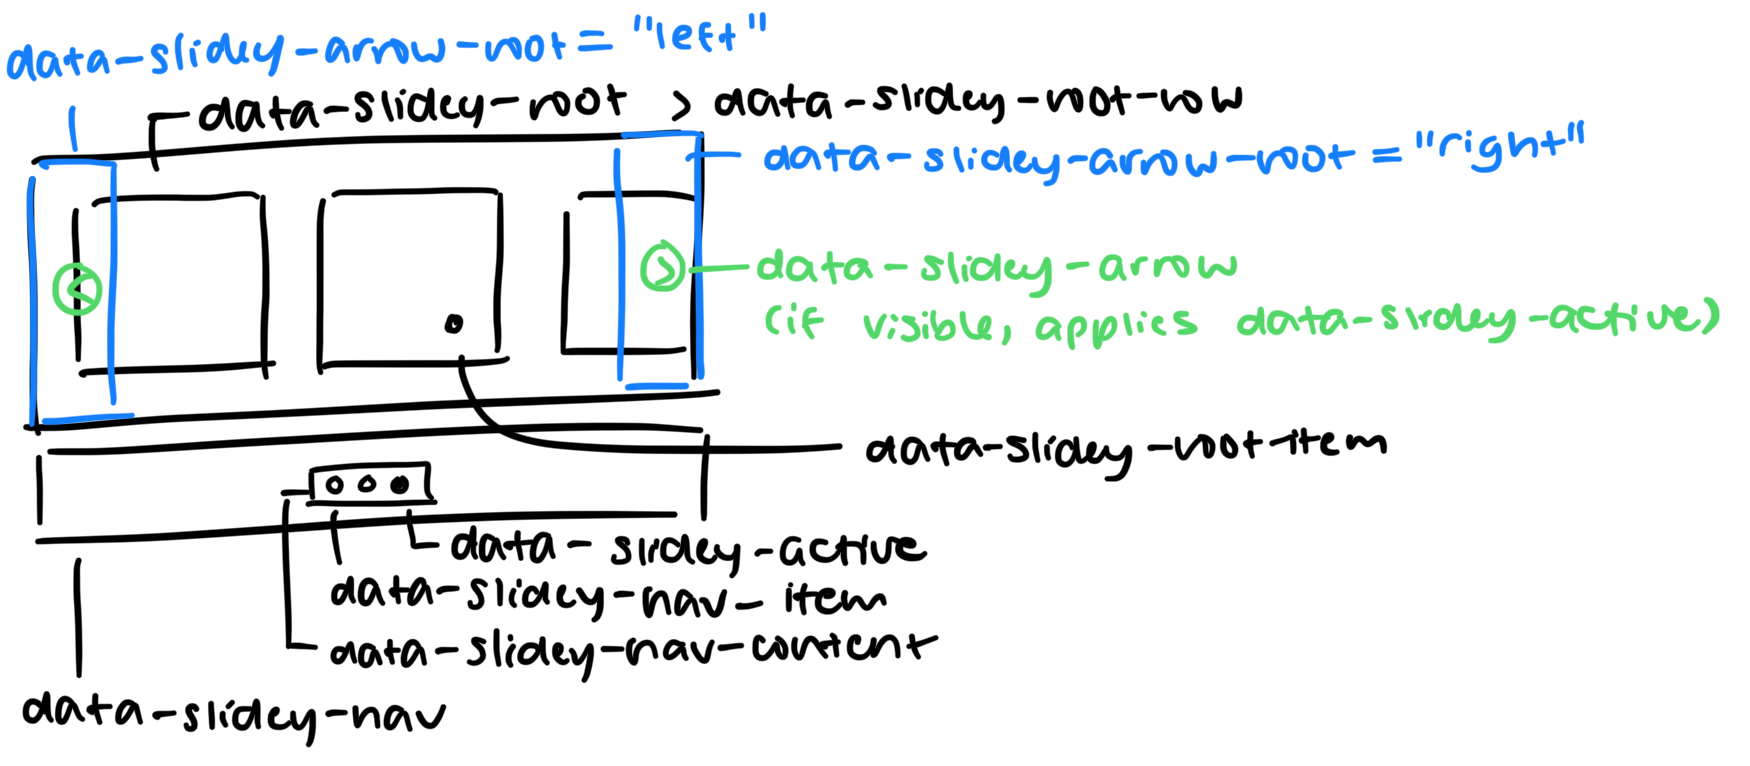 data-slidey-arrow-root = "left"
data-slidey-root > data-slidey-root-row
data-slidey-arrow-root = "right"
data-slidey-arrow
(if visible, applies data-slidey-active)
data-slidey-root-item
data-slidey-active
data-slidey-nav-item
data-slidey-nav-content
data-slidey-nav